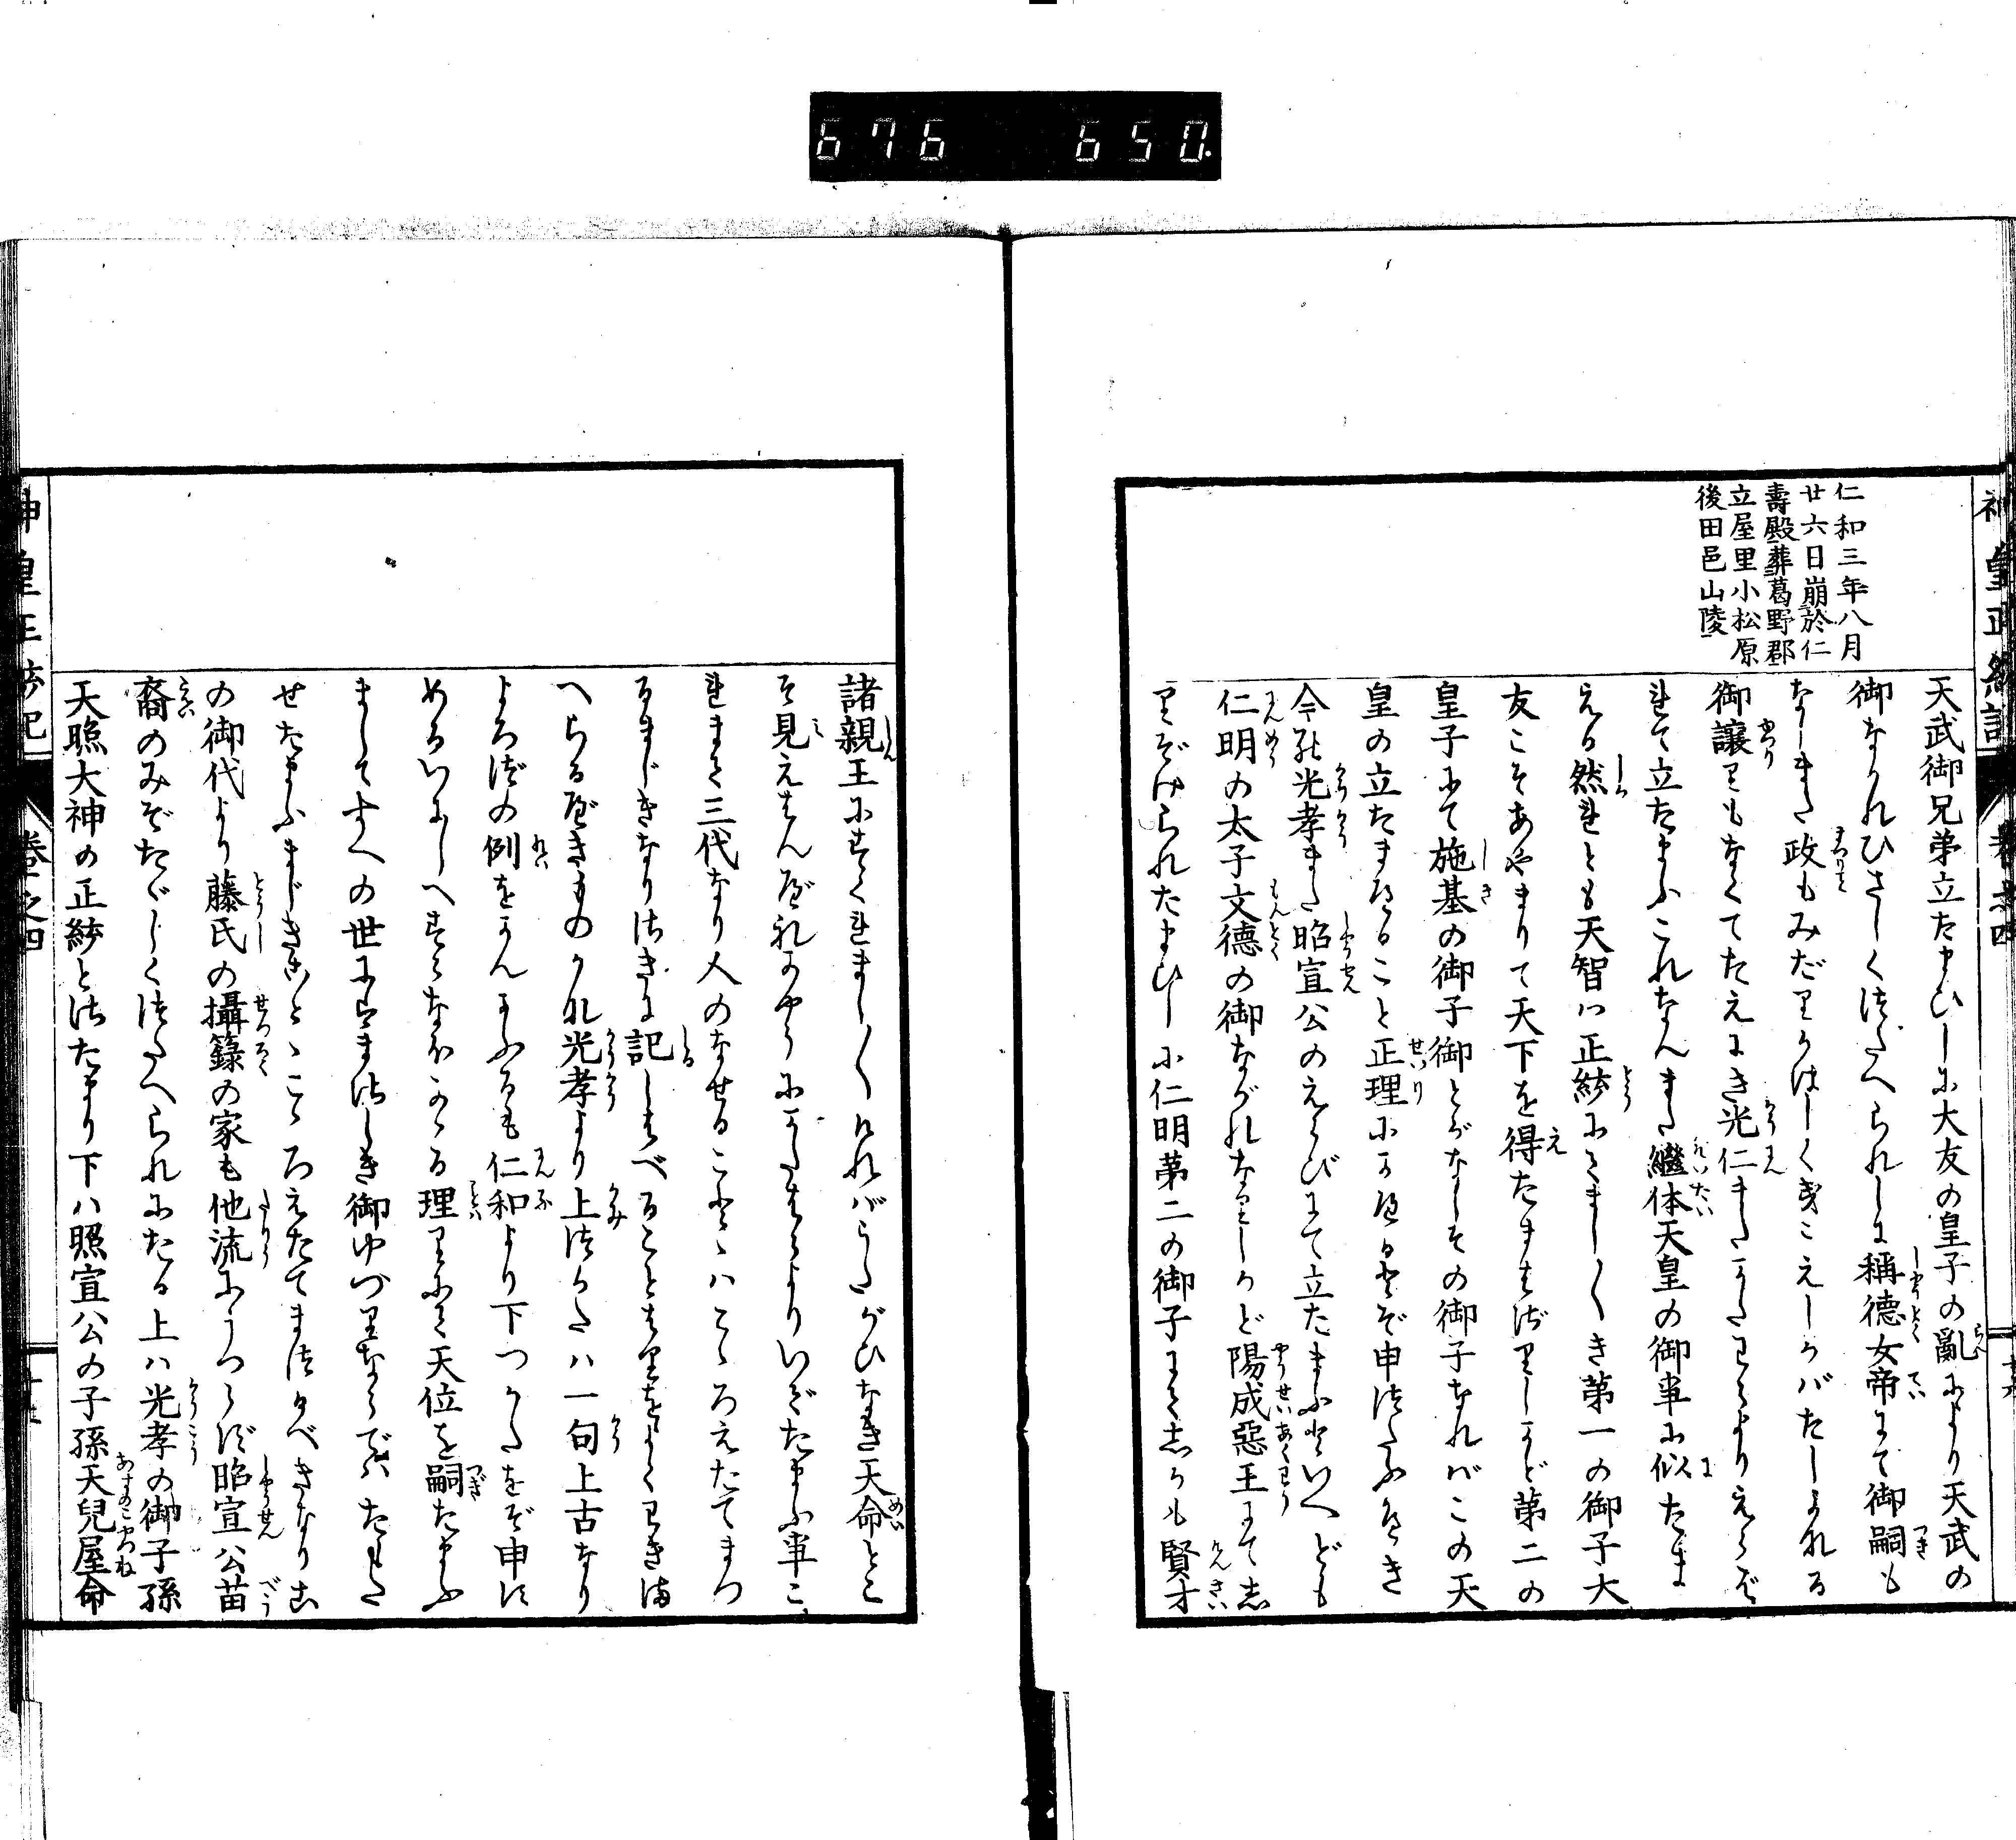 676 650.
神皇正統記
巻之四
仁和三年八月
廿六日崩於仁
壽殿葬葛野郡
立屋里小松原
後田邑山陵
天武御兄弟立たまひしに大友の皇子の亂により天武の
御ながれひさしくつたへられしに稱德女帝にて御嗣も
なしまた政もみだりかはしくきこえしかバたしかなる
御讓りもなくてたえにき光仁またかたわらよりえらば
れて立たまふこれなんまた繼体天皇の御事に似たま
える然れとも天智ハ正統にてまし〱き第一の御子大
友こそあやまりて天下を得たまはざりしかど第二の
皇子にて施基の御子御とがなしその御子なれバこの天
皇の立たまへること正理にかへるとぞ申つたふべき
今の光孝また昭宣公のえらびにて立たまふといへども
仁明の太子文德の御ながれなりしかど陽成惡王にて志
りぞけられたまひしに仁明第二の御子にてしかも賢才
諸親王にすぐれまし〱けれバうたがひなき天命とこ
そ見えはんべれかやうにかたはらよりいでたまふ事こ
れまて三代なり人のなせることゝハこゝろえたてまつ
るまじきなりさきに記しはべることはりをよくわきま
へらるべきものか光孝より上つかたハ一向上古なり
よろづの例をかんかふるも仁和より下つかたをぞ申す
めるいにしへすらなほかゝる理りにて天位を嗣たまふ
ましてすへの世にはまさしき御ゆづりならでハたもた
せたまふまじきことゝこゝろえたてまつるべきなりこ
の御代より藤氏の攝籙の家も他流にうつらず昭宣公苗
裔のみぞたゞしくつたへられにたる上ハ光孝の御子孫
天照大神の正統とさたまり下ハ照宣公の子孫天兒屋命
神皇正統記
巻之四